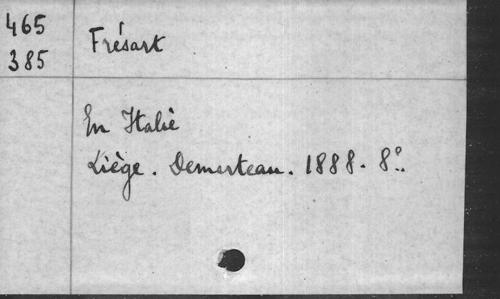 465
385
Frésart
En Italie
Liège. Demarteau. 1888. 8°.